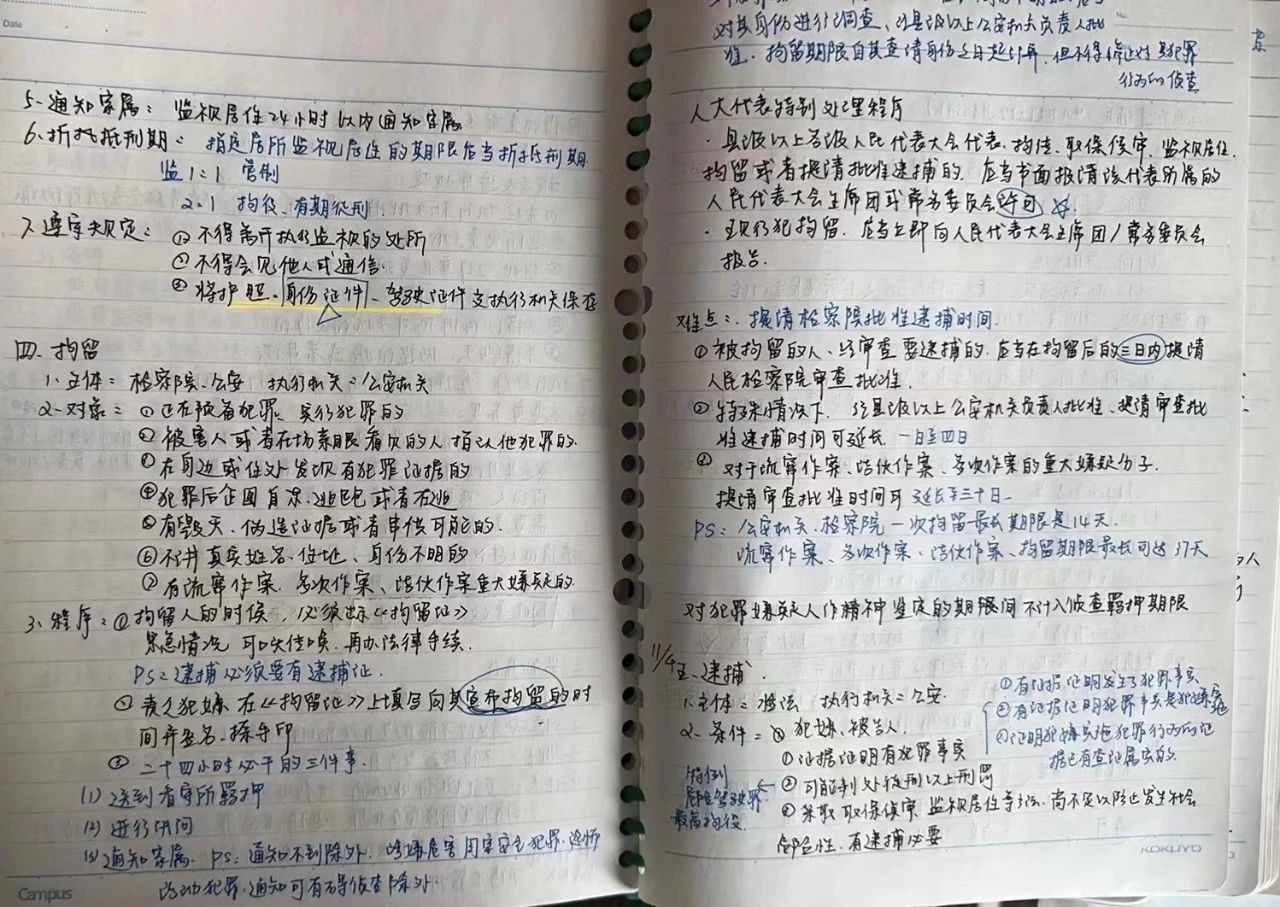 Date
5. 通知家属： 监视居住24小时以内通知家属
6. 折抵刑期： 指定居所监视居住的期限应当折抵刑期.
监1:1 管制
2:1 拘役、有期徒刑.
7. 遵守规定： ① 不得离开执行监视的处所
② 不得会见他人或通信.
③ 将护照、身份证件、驾驶证件交执行机关保存
四. 拘留
1. 主体： 检察院、公安 执行机关：公安机关
2. 对象： ① 正在预备犯罪、实行犯罪的
② 被害人或者在场亲眼看见的人指认他犯罪的.
③ 在身边或住处发现有犯罪证据的
④ 犯罪后企图自杀、逃跑或者在逃
⑤ 有毁灭、伪造证据或者串供可能的.
⑥ 不讲真实姓名、住址、身份不明的
⑦ 有流窜作案、多次作案、结伙作案重大嫌疑的.
3. 程序：① 拘留人的时候，必须出示《拘留证》
紧急情况 可以传唤，再办法律手续.
PS：逮捕必须要有逮捕证.
② 犯嫌 在《拘留证》上填写向其宣布拘留的时
间并签名、捺手印
③ 二十四小时必干的三件事.
(1) 送到看守所羁押
(2) 进行讯问
(3) 通知家属. PS：通知不到除外. 涉嫌危害国家安全犯罪、恐怖
活动犯罪、通知可有碍侦查除外.
Campus
No.
对其身份进行调查、经县级以上公安机关负责人批
准，拘留期限自其查清身份之日起计算，但不得停止对其犯罪
行为的侦查
人大代表特别处理程序
· 县级以上各级人民代表大会代表、拘传、取保候审、监视居住、
拘留或者提请批准逮捕的. 应当书面报请该代表所属的
人民代表大会主席团或常务委员会许可
· 现行犯拘留，应当立即向人民代表大会主席团/常务委员会
报告.
难点：提请检察院批准逮捕时间.
① 被拘留的人、经审查要逮捕的. 应当在拘留后的三日内提请
人民检察院审查批准.
② 特殊情况下. 经县级以上公安机关负责人批准、提请审查批
准逮捕时间可延长 一日至四日
③ 对于流窜作案、结伙作案、多次作案的重大嫌疑分子.
提请审查批准时间可 延长至三十日.
PS：公安机关、检察院 一次拘留最长期限是14天.
流窜作案、多次作案、结伙作案、拘留期限最长可达37天
对犯罪嫌疑人作精神鉴定的期间不计入侦查羁押期限
11/4 五. 逮捕.
1. 主体： 执行机关：公安.
2. 条件： 犯嫌、被告人.
① 证据证明有犯罪事实
② 可能判处徒刑以上刑罚
③ 采取取保候审、监视居住等方法. 尚不足以防止发生社会
危险性、有逮捕必要
① 有证据证明发生了犯罪事实
② 有证据证明犯罪事实是犯嫌实施
③ 证明犯嫌实施犯罪行为的证
据已有查证属实的.
特例
危险驾驶罪
最高拘役.
KOKUYO